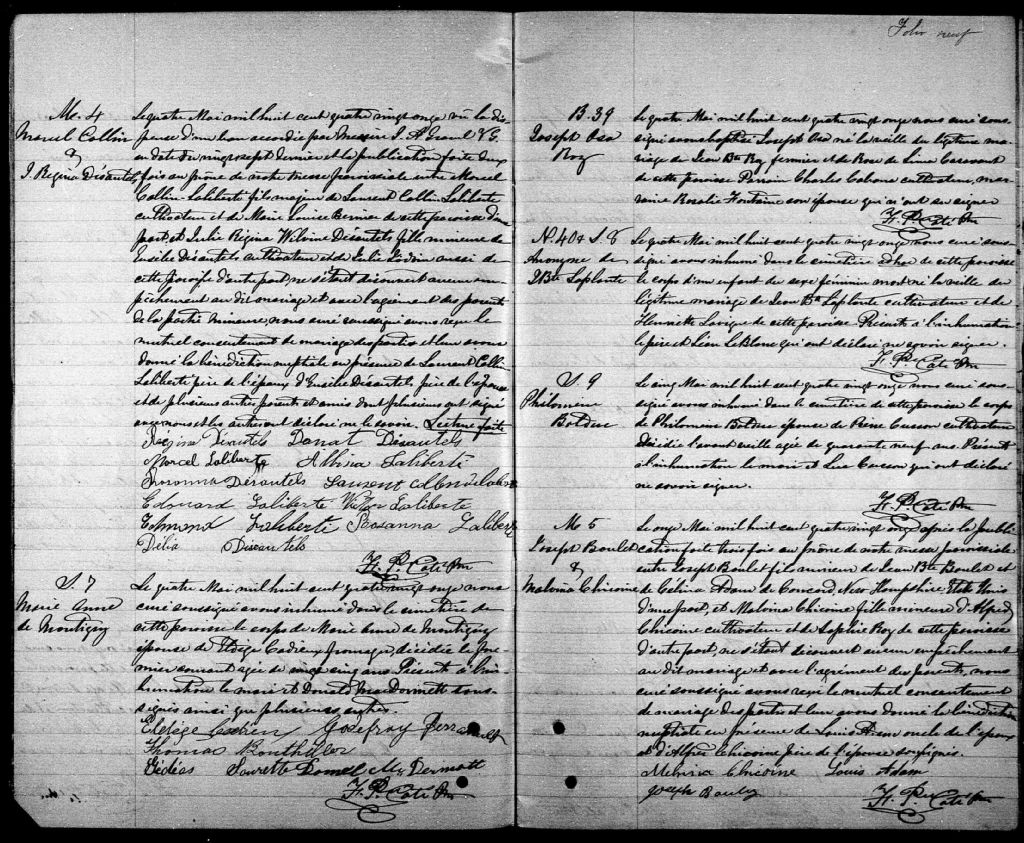 Folio neuf
M. 4
Marcel Collin
&
J. Regina Désautels
Le quatre Mai mil huit cent quatre vingt onze vu la dis-
pense d'un ban accordée par Messire J. A. Gravel V. G.
en date du vingt sept dernier et la publication faite deux
fois au prône de notre messe paroissiale entre Marcel
Collin Laliberté fils majeur de Laurent Collin Laliberté
cultivateur et de Marie Louise Bernier de cette paroisse d'une
part, et Julie Régina Wilvine Désautels fille mineure de
Eusèbe Désautels cultivateur et de Julie Jodoin aussi de
cette paroisse d'autre part, ne s'étant découvert aucun em-
pêchement au dit mariage et avec l'agrément des parents
de la partie mineure, nous curé soussigné avons reçu le
mutuel consentement de mariage des parties et leur avons
donné la bénédiction nuptiale en présence de Laurent Collin
Laliberté père de l'époux d'Eusèbe Désautels père de l'épouse
et de plusieurs autres parents et amis dont plusieurs ont signé
avec nous et les autres ont déclaré ne le savoir. Lecture faite
Régina Désautels Donat Désautels
Marcel Laliberté Albina Laliberté
Rosanna Désautels Laurent Collin dit Laliberté
Edouard Laliberté Victor Laliberté
Edmond Laliberté Rosanna Laliberté
Délia Désautels
F. P. Côté Ptre
S. 7
Marie Anne
de Montigny
Le quatre Mai mil huit cent quatre vingt onze nous
curé soussigné avons inhumé dans le cimetière de
cette paroisse le corps de Marie Anne de Montigny
épouse de Eldège Cadieux fromager, décédée le pre-
mier courant agée de vingt cinq ans. Présents à l'in-
humation le mari et Donald MacDermott sous-
signés ainsi que plusieurs autres.
Eldège Cadieux Godefroy Perreault
Thomas Bonthiller
Gédéas Donel McDermott
F. P. Côté Ptre
B. 39
Joseph Osa
Roy
Le quatre Mai mil huit cent quatre vingt onze nous curé sous-
signé avons baptisé Joseph Osa né la veille du légitime ma-
riage de Jean Bte Roy fermier et de Rose de Lima
de cette paroisse Parrain Charles Cabana cultivateur, mar-
raine Rosalie Fontaine son épouse qui n'ont su signer
F. P. Côté Ptre
N. 40 & S. 8
Anonyme de
J Bte Laplante
Le quatre Mai mil huit cent quatre vingt onze nous curé sous-
signé avons inhumé dans le cimetière de cette paroisse
le corps d'un enfant du sexe féminin mort né la veille du
légitime mariage de Jean Bte Laplante cultivateur et de
Henriette de cette paroisse Présents à l'inhumation
le père et Léon LeBlanc qui ont déclaré ne savoir signer.
F. P. Côté Ptre
S. 9
Philomène
Bolduc
Le cinq Mai mil huit cent quatre vingt onze nous curé sous-
signé avons inhumé dans le cimetière de cette paroisse le corps
de Philomène Bolduc épouse de Pierre Cusson cultivateur
décédée l'avant veille agée de quarante neuf ans Présents
à l'inhumation le mari et Luc Cusson qui ont déclaré
ne savoir signer.
F. P. Côté Ptre
M. 5
Joseph Boulet
&
Malvina Chicoine
Le onze Mai mil huit cent quatre vingt onze après la publi-
cation faite trois fois au prône de notre messe paroissiale
entre Joseph Boulet fils mineur de Jean Bte Boulet et
de Célina Adam de Concord, New Hampshire, Etats Unis
d'une part, et Malvina Chicoine fille mineure d'Alfred
Chicoine cultivateur et de Sophie Roy de cette paroisse
d'autre part, ne s'étant découvert aucun empêchement
au dit mariage et avec l'agrément des parents, nous
curé soussigné avons reçu le mutuel consentement
de mariage des parties et leur avons donné la bénédiction
nuptiale en présence de Louis Adam oncle de l'époux
et d'Alfred Chicoine père de l'épouse soussignés.
Melvina Chicoine Louis Adam
Joseph Bouley
F. P. Côté Ptre